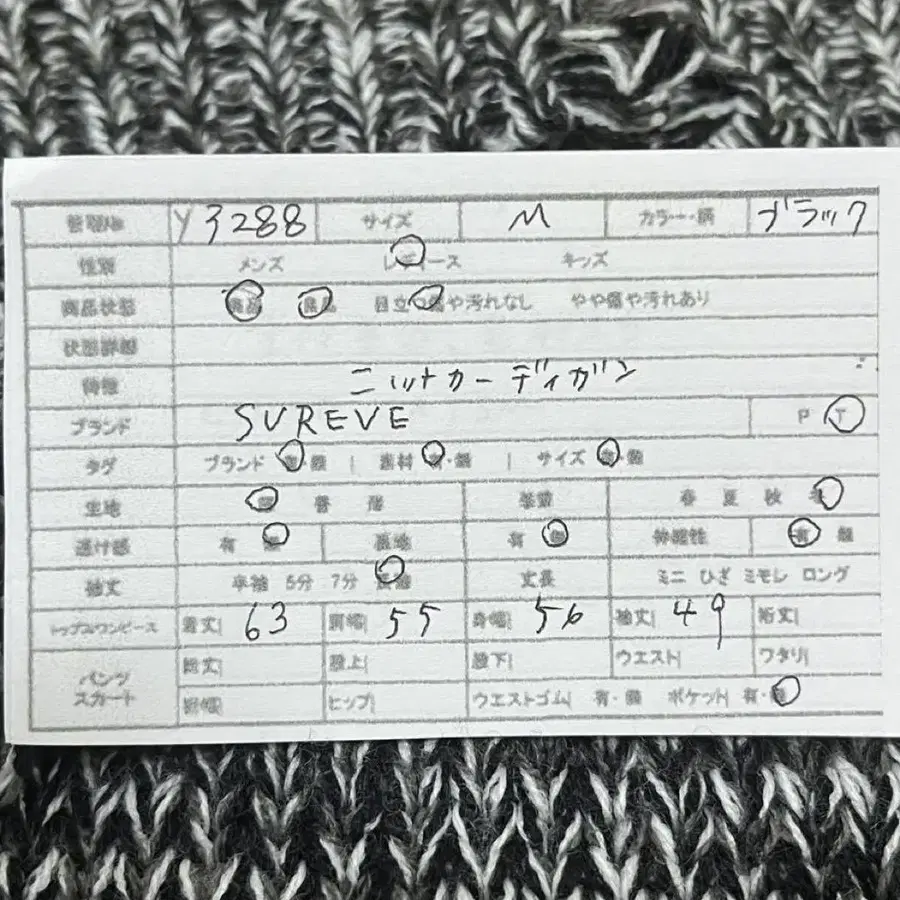 管理No Y3288 サイズ M カラー・柄 ブラック
性別 メンズ レディース キッズ
商品状態 美品 良品 目立つ傷や汚れなし やや傷や汚れあり
状態詳細
特徴 ニットカーディガン
ブランド SUREVE P T
タグ ブランド 有・無 | 素材 有・無 | サイズ 有・無
生地 厚 普 薄 季節 春 夏 秋 冬
透け感 有 無 裏地 有 無 伸縮性 有 無
袖丈 半袖 5分 7分 長袖 丈長 ミニ ひざ ミモレ ロング
トップス/ワンピース 着丈| 63 肩幅| 55 身幅| 56 袖丈| 49 裄丈|
パンツ スカート 総丈| 股上| 股下| ウエスト| ワタリ|
裾幅| ヒップ| ウエストゴム| 有・無 ポケット| 有・無